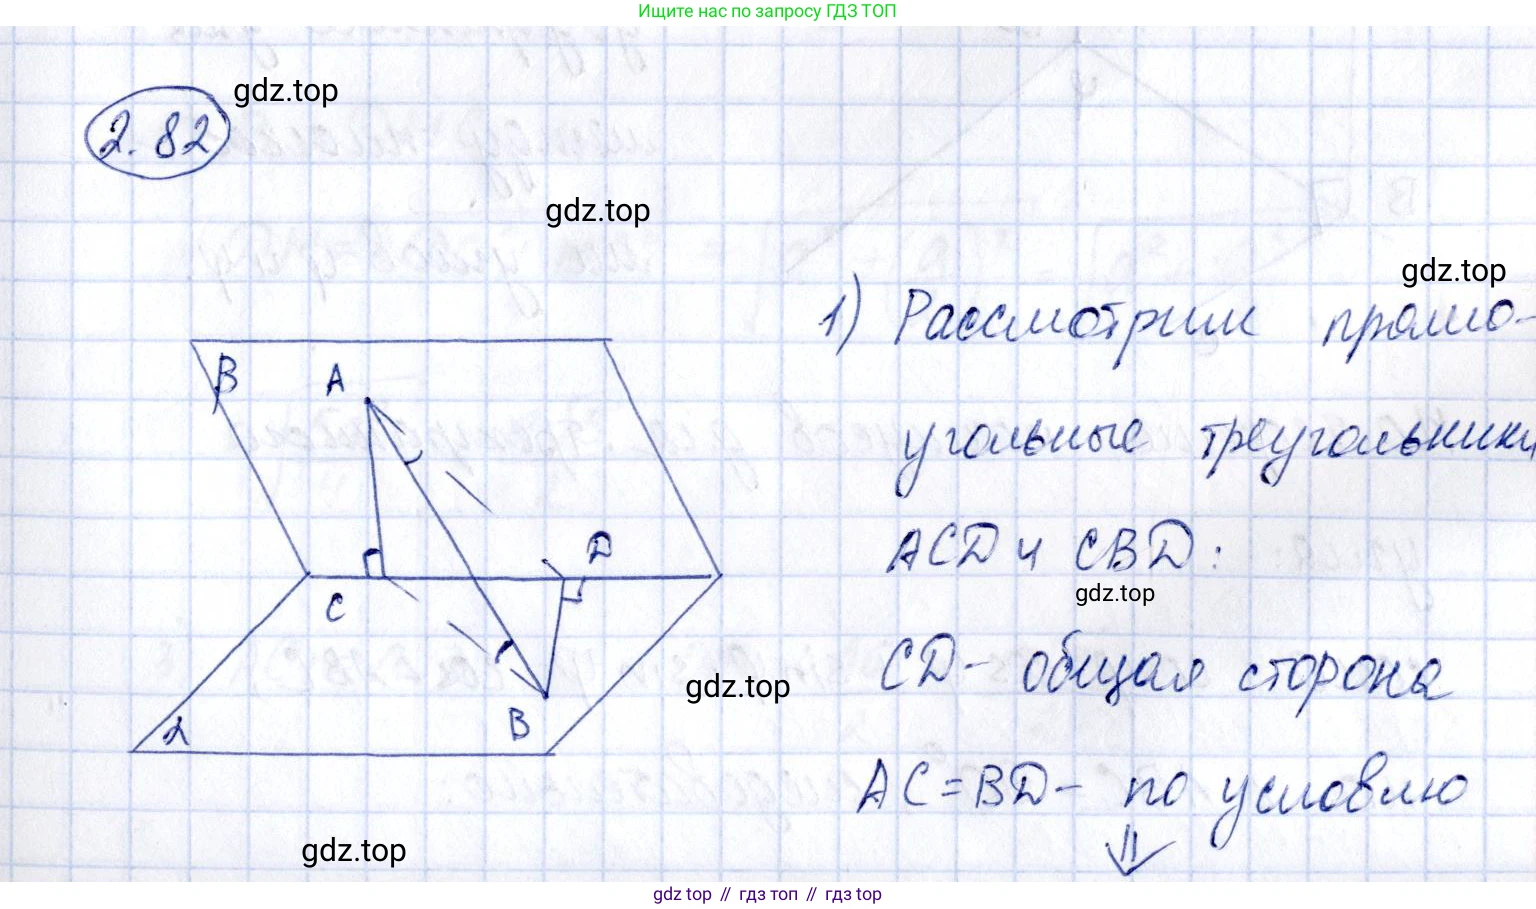 Ищите нас по запросу ГДЗ ТОП
2.82
gdz.top
gdz.top
gdz.top
1) Рассмотрим прямо-
угольные треугольники
ACD и CBD:
gdz.top
CD - общая сторона
gdz.top
AC = BD - по условлю
⇓
β
A
D
C
B
α
gdz.top
gdz.top // гдз топ // гдз top